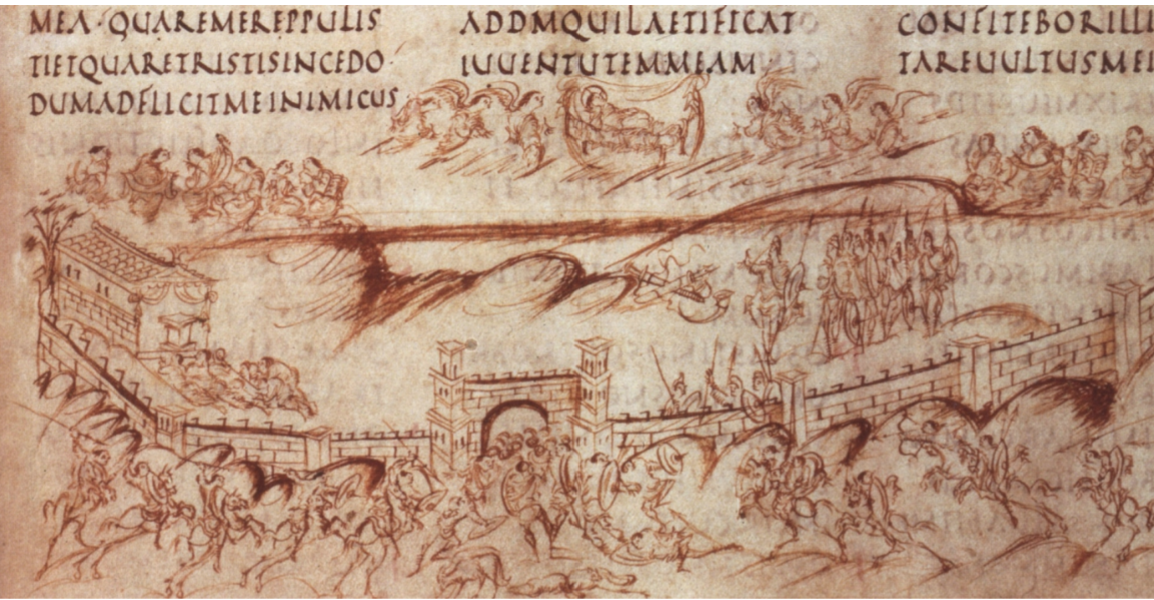 MEA · QUAREMEREPPULIS
TIETQUARETRISTISINCEDO ·
DUMADFLIGITMEINIMICUS ·
ADDMQUILAETIFICAT
IUUENTUTEMMEAM
CONFITEBORILLI
TAREUULTUSMEI